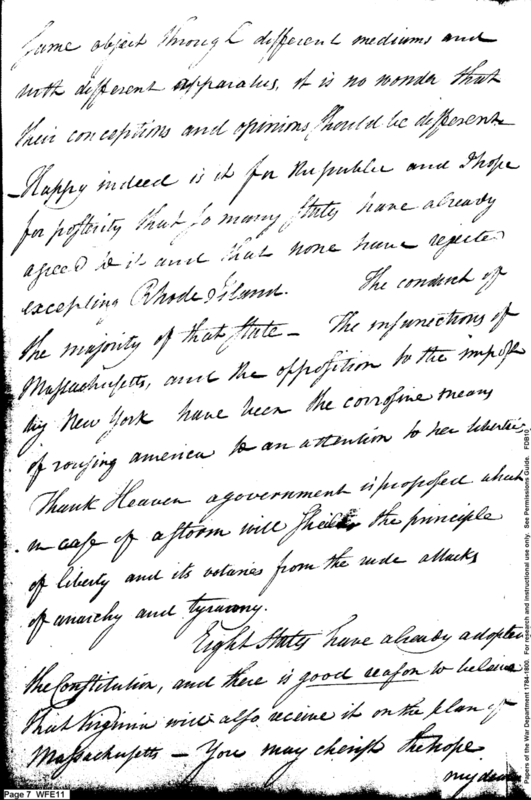 same object through different mediums and
with different apparatus, it is no wonder that
their conceptions and opinions should be different
—Happy indeed is it for the public and I hope
for posterity that so many States have already
agreed to it and that none have rejected
excepting Rhode Island. The conduct of
the majority of that State— The insurrections of
Massachusetts, and the opposition to the impost
by New York have been the corrosive means
of rousing america to an attention to her liberties
Thank Heaven a government is proposed which
in case of a storm will Sheild the principle
of liberty and its votaries from the rude attacks
of anarchy and tyranny.
Eight States have already adopted
the Constitution, and there is good reason to believe
that Virginia will also receive it on the plan of
Massachusetts — You may cherish the hope
my dear
Page 7 WFE11
Papers of the War Department 1784-1800. For research and instructional use only. See Permissions Guide. FDB10